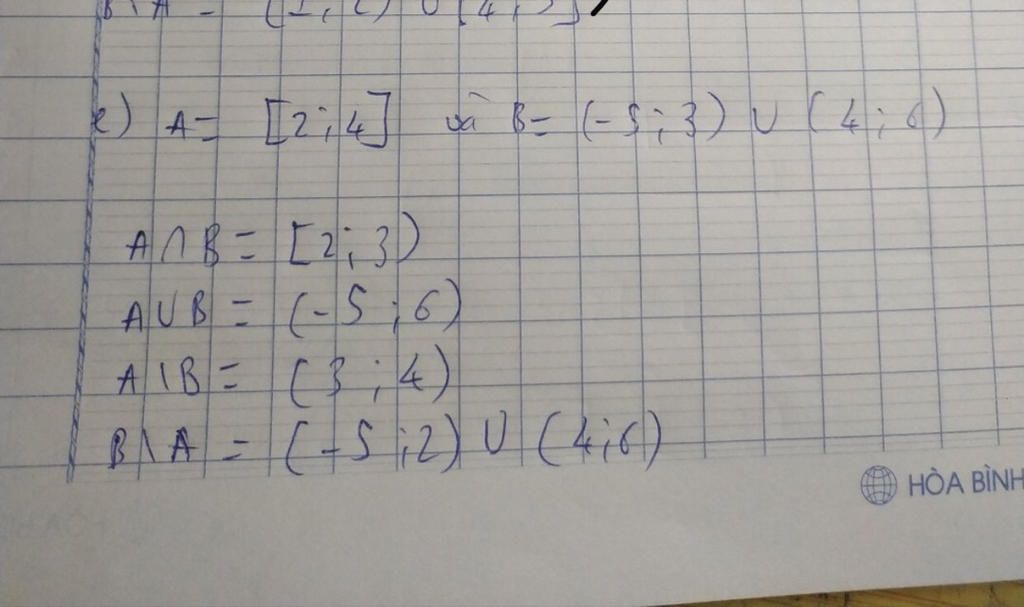 B \ A = (1; 2) ∪ [4; 5]
e) A = [2; 4] và B = (-5; 3) ∪ (4; 6)
A ∩ B = [2; 3)
A ∪ B = (-5; 6)
A \ B = (3; 4)
B \ A = (-5; 2) ∪ (4; 6)
HÒA BÌNH